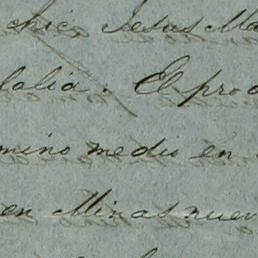 chic Jesus Ma
lalia. El pro
mino medio en
en Minas nuev